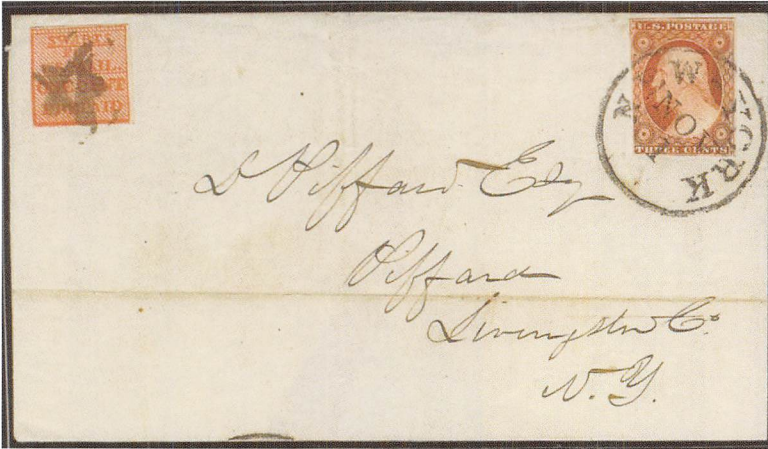 SWARTS
ONE CENT
PAID
U.S. POSTAGE
THREE CENTS
NEW YORK
NOV
D Piffard Esq
Piffard
Livingston Co.
N.Y.